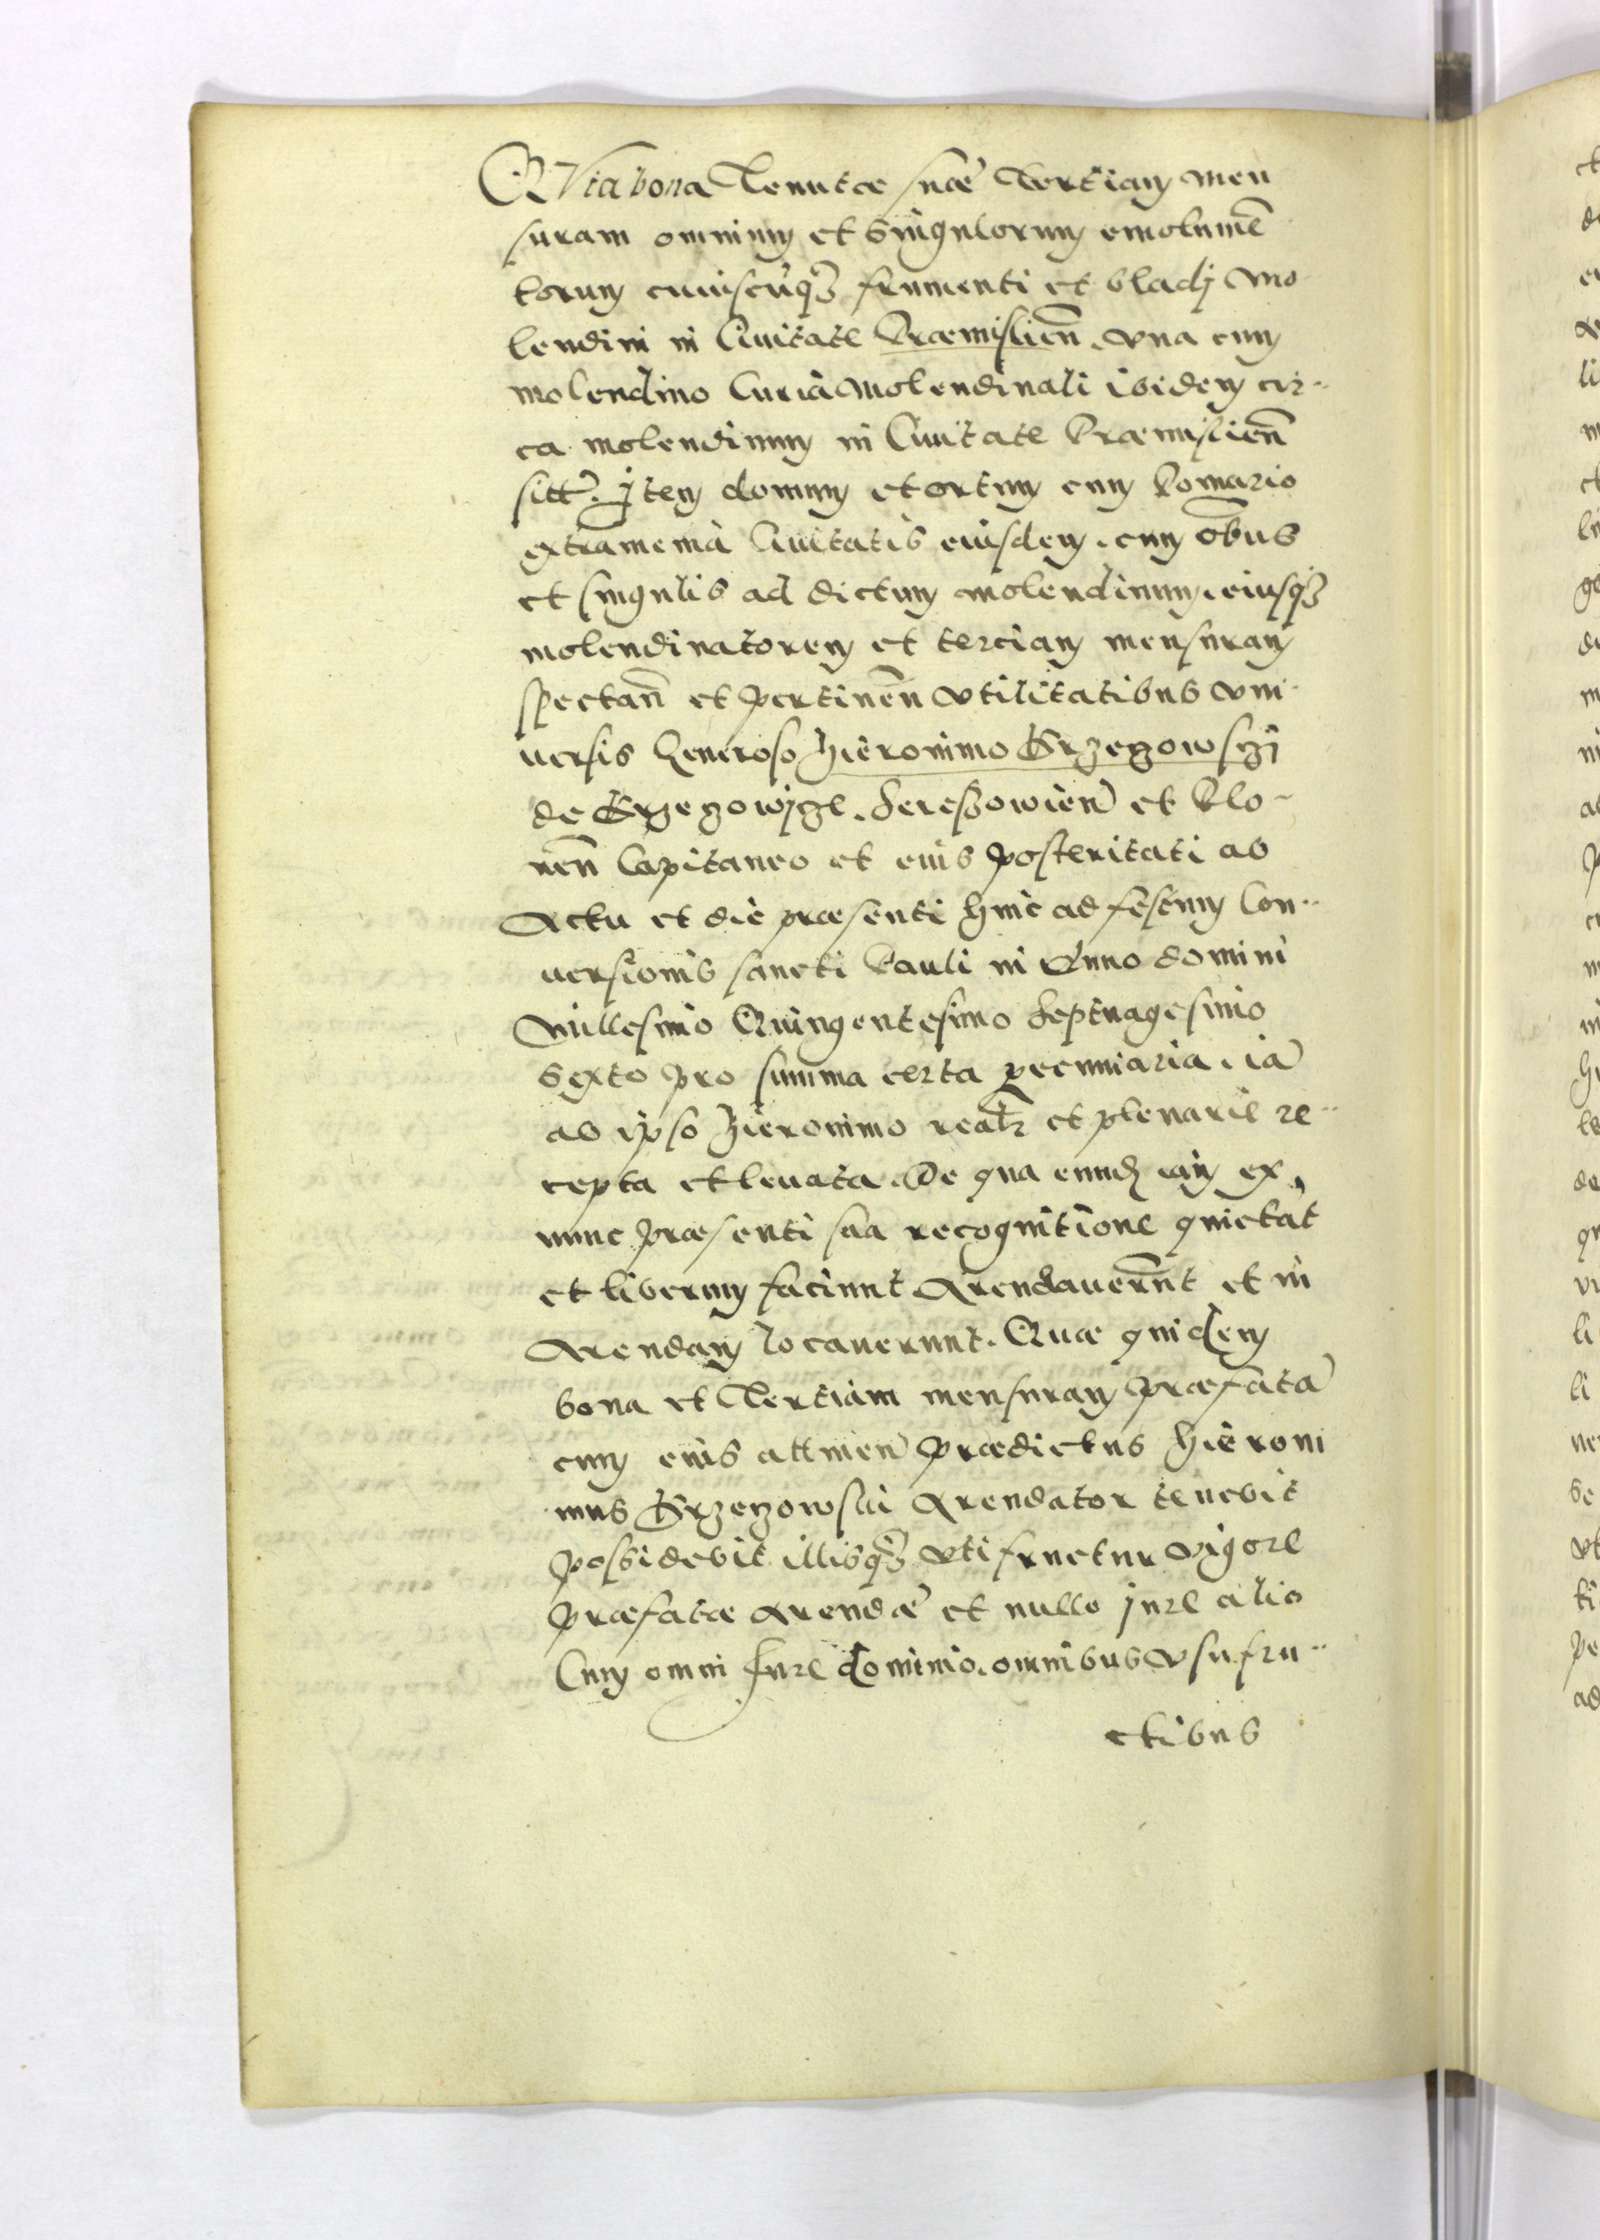 Quia bona Tenutæ suæ Tertiam men
suram omnium et singulorum emolumē
torum cuiuscūq3 frumenti et bladj mo
lendini in Ciuitate Præmislień. vna cum
molendino Curia molendinali ibidem cir-
ca molendinum in Ciuitate Præmislień
sitt. Item domum et ortum cum Pomario
extramenia Ciuitatis eiusdem. cum oībus
et singulis ad dictum molendinum. eiusq3
molendinatorem et terciam mensuram
spectań et pertineń vtilitatibus vni
uersis Generoso Hieronimo
de et
neń Capitaneo et eius posteritati ab
Actu et die præsenti hinc ad festum Con-
uersionis sancti Pauli in Anno domini
Millesimo Quingentesimo Septuagesimo
Sexto pro summa certa pecuniaria. iā
ab ipso Hieronimo realr et plenarie re-
cepta et leuata. De qua eund iam ex
nunc præsenti sua recognitione quietāt
et liberum faciunt Arendauerūnt et in
Arendam locauerunt. Quæ quidem
bona et Tertiam mensuram præfatā
cum eius attineń prædictus Hieroni
mus Arendator tenebit
possidebit illisq3 vti fruetur vigore
præfatæ Arendæ et nullo jure alio
Cum omni Jure dominio. omnibus vsufru-
ctibus